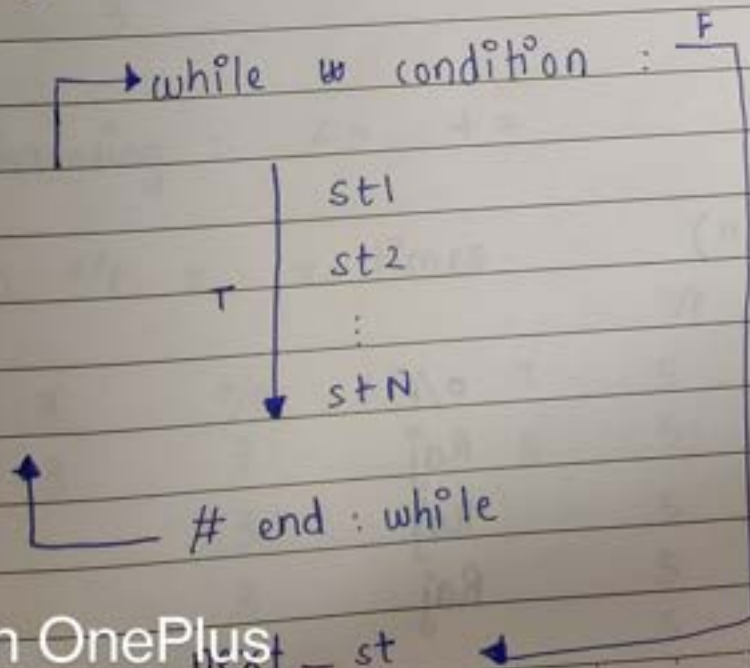 while condition : F
st1
st2
T
:
stN
# end : while
n OnePlus
st